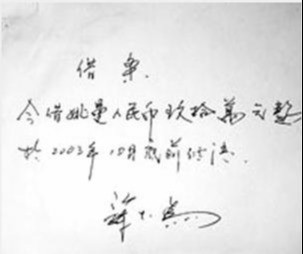 借条
今借姚曼人民币玖拾萬元整
於2003年10月底前付清.